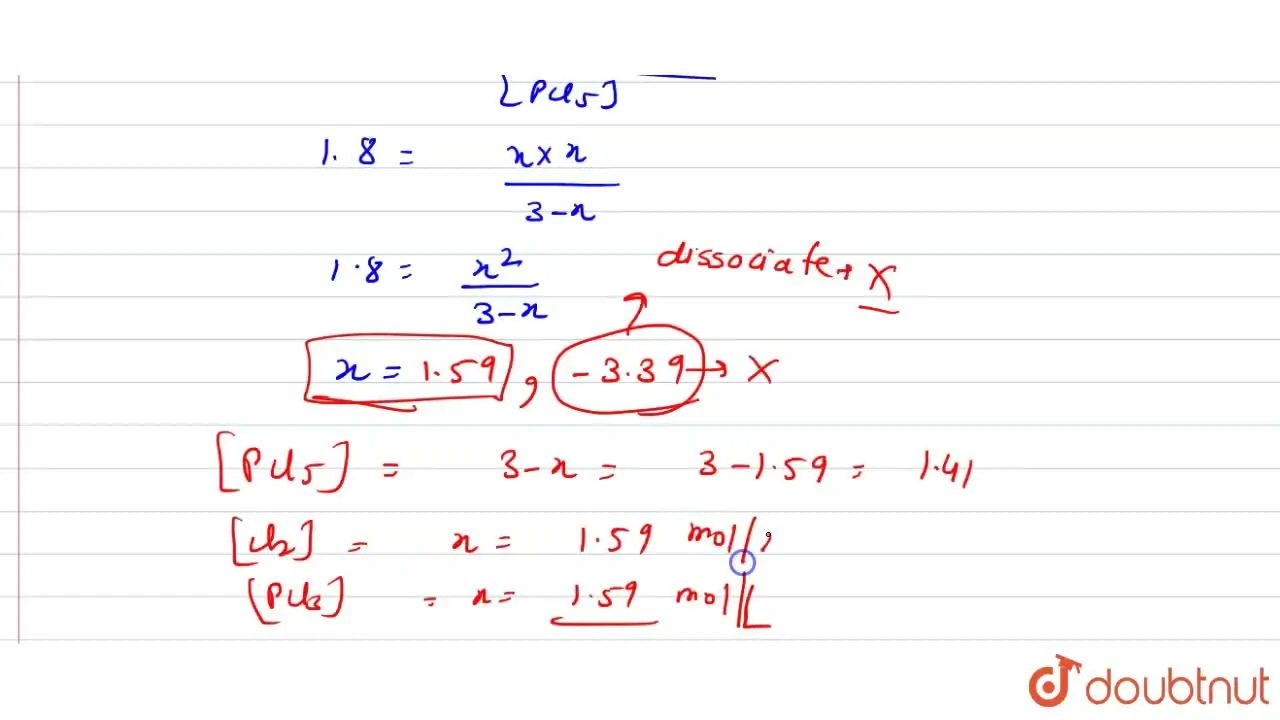 [PCl5]
1.8 = x × x / 3-x
1.8 = x² / 3-x
dissociate → X
x = 1.59 , -3.39 → X
[PCl5] = 3-x = 3-1.59 = 1.41
[Cl2] = x = 1.59 mol/
[PCl3] = x = 1.59 mol/L
doubtnut